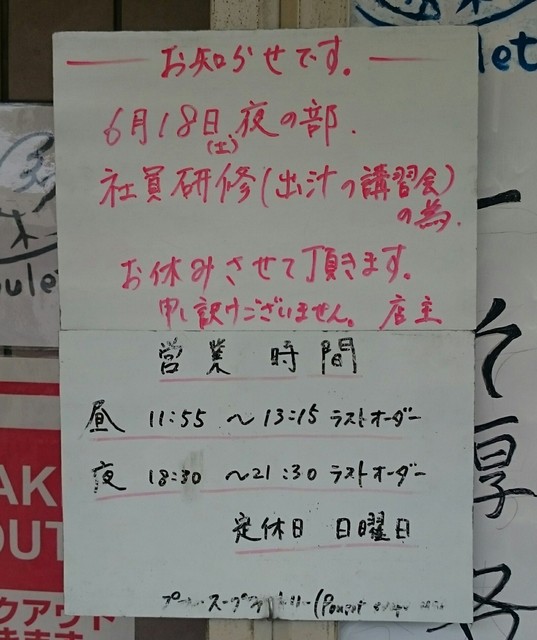 お知らせです。
6月18日夜の部.
(土)
社員研修(出汁の講習会)
の為.
お休みさせて頂きます。
申し訳けございません。店主
営業時間
昼 11:55 ～13:15 ラストオーダー
夜 18:30 ～21:30 ラストオーダー
定休日 日曜日
let
oulet
AK
OUT
クアウト